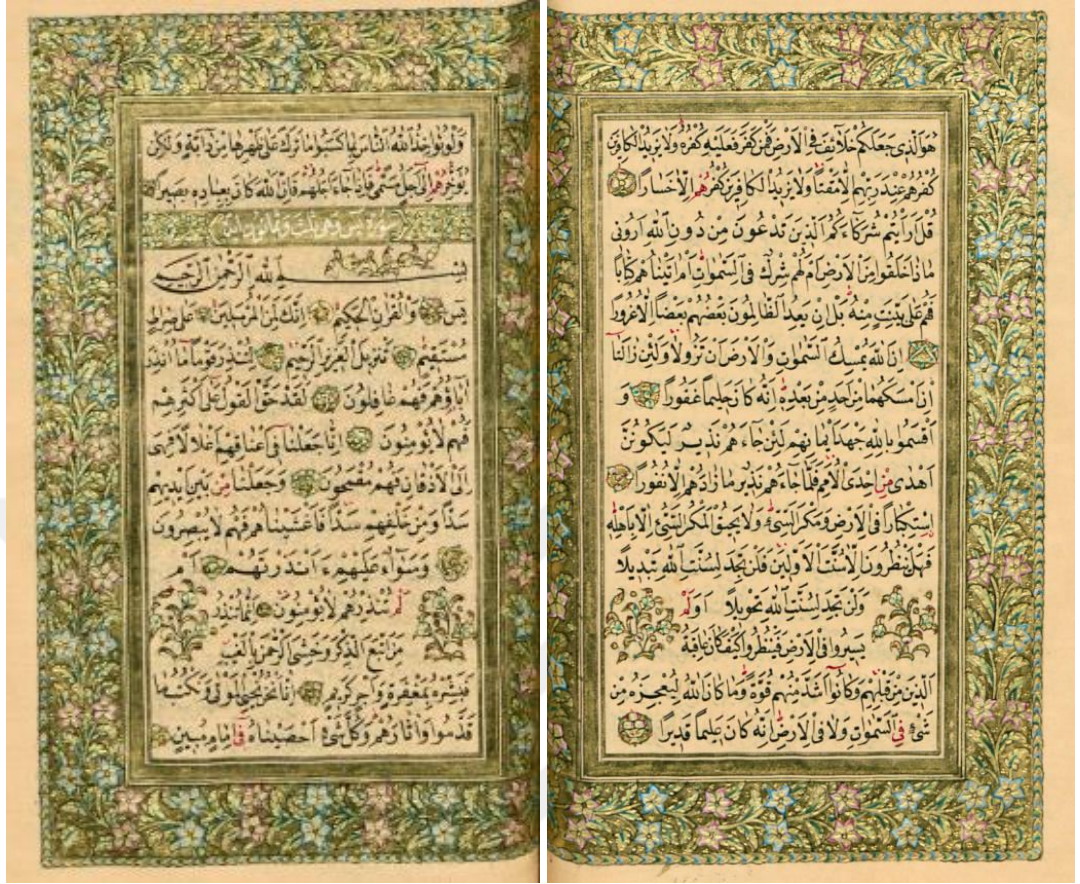 هُوَ الَّذِى جَعَلَكُمْ خَلَائِفَ فِى الْاَرْضِ فَمَنْ كَفَرَ فَعَلَيْهِ كُفْرُهُ وَلَا يَزِيدُ الْكَافِرِينَ
كُفْرُهُمْ عِنْدَ رَبِّهِمْ اِلَّا مَقْتًا وَلَا يَزِيدُ الْكَافِرِينَ كُفْرُهُمْ اِلَّا خَسَارًا
قُلْ اَرَاَيْتُمْ شُرَكَاءَكُمُ الَّذِينَ تَدْعُونَ مِنْ دُونِ اللّٰهِ اَرُونِى
مَاذَا خَلَقُوا مِنَ الْاَرْضِ اَمْ لَهُمْ شِرْكٌ فِى السَّمٰوَاتِ اَمْ اٰتَيْنَاهُمْ كِتَابًا
فَهُمْ عَلٰى بَيِّنَتٍ مِنْهُ بَلْ اِنْ يَعِدُ الظَّالِمُونَ بَعْضُهُمْ بَعْضًا اِلَّا غُرُورًا
اِنَّ اللّٰهَ يُمْسِكُ السَّمٰوَاتِ وَالْاَرْضَ اَنْ تَزُولَا وَلَئِنْ زَالَتَا
اِنْ اَمْسَكَهُمَا مِنْ اَحَدٍ مِنْ بَعْدِهِ اِنَّهُ كَانَ حَلِيمًا غَفُورًا وَ
اَقْسَمُوا بِاللّٰهِ جَهْدَ اَيْمَانِهِمْ لَئِنْ جَاءَهُمْ نَذِيرٌ لَيَكُونُنَّ
اَهْدٰى مِنْ اِحْدَى الْاُمَمِ فَلَمَّا جَاءَهُمْ نَذِيرٌ مَا زَادَهُمْ اِلَّا نُفُورًا
اِسْتِكْبَارًا فِى الْاَرْضِ وَمَكْرَ السَّيِّئِ وَلَا يَحِيقُ الْمَكْرُ السَّيِّئُ اِلَّا بِاَهْلِهِ
فَهَلْ يَنْظُرُونَ اِلَّا سُنَّتَ الْاَوَّلِينَ فَلَنْ تَجِدَ لِسُنَّتِ اللّٰهِ تَبْدِيلًا
وَلَنْ تَجِدَ لِسُنَّتِ اللّٰهِ تَحْوِيلًا اَوَلَمْ
يَسِيرُوا فِى الْاَرْضِ فَيَنْظُرُوا كَيْفَ كَانَ عَاقِبَةُ
الَّذِينَ مِنْ قَبْلِهِمْ وَكَانُوا اَشَدَّ مِنْهُمْ قُوَّةً وَمَا كَانَ اللّٰهُ لِيُعْجِزَهُ مِنْ
شَىْءٍ فِى السَّمٰوَاتِ وَلَا فِى الْاَرْضِ اِنَّهُ كَانَ عَلِيمًا قَدِيرًا
وَلَوْ يُؤَاخِذُ اللّٰهُ النَّاسَ بِمَا كَسَبُوا مَا تَرَكَ عَلٰى ظَهْرِهَا مِنْ دَابَّةٍ وَلٰكِنْ
يُؤَخِّرُهُمْ اِلٰى اَجَلٍ مُسَمًّى فَاِذَا جَاءَ اَجَلُهُمْ فَاِنَّ اللّٰهَ كَانَ بِعِبَادِهِ بَصِيرًا
بِسْمِ اللّٰهِ الرَّحْمٰنِ الرَّحِيمِ
يٰسٓ وَالْقُرْاٰنِ الْحَكِيمِ اِنَّكَ لَمِنَ الْمُرْسَلِينَ عَلٰى صِرَاطٍ
مُسْتَقِيمٍ تَنْزِيلَ الْعَزِيزِ الرَّحِيمِ لِتُنْذِرَ قَوْمًا مَا اُنْذِرَ
اٰبَاؤُهُمْ فَهُمْ غَافِلُونَ لَقَدْ حَقَّ الْقَوْلُ عَلٰى اَكْثَرِهِمْ
فَهُمْ لَا يُؤْمِنُونَ اِنَّا جَعَلْنَا فِى اَعْنَاقِهِمْ اَغْلَالًا فَهِىَ
اِلَى الْاَذْقَانِ فَهُمْ مُقْمَحُونَ وَجَعَلْنَا مِنْ بَيْنِ اَيْدِيهِمْ
سَدًّا وَمِنْ خَلْفِهِمْ سَدًّا فَاَغْشَيْنَاهُمْ فَهُمْ لَا يُبْصِرُونَ
وَسَوَاءٌ عَلَيْهِمْ ءَاَنْذَرْتَهُمْ اَمْ
لَمْ تُنْذِرْهُمْ لَا يُؤْمِنُونَ اِنَّمَا تُنْذِرُ
مَنِ اتَّبَعَ الذِّكْرَ وَخَشِىَ الرَّحْمٰنَ بِالْغَيْبِ
فَبَشِّرْهُ بِمَغْفِرَةٍ وَاَجْرٍ كَرِيمٍ اِنَّا نَحْنُ نُحْيِى الْمَوْتٰى وَنَكْتُبُ مَا
قَدَّمُوا وَاٰثَارَهُمْ وَكُلَّ شَىْءٍ اَحْصَيْنَاهُ فِى اِمَامٍ مُبِينٍ